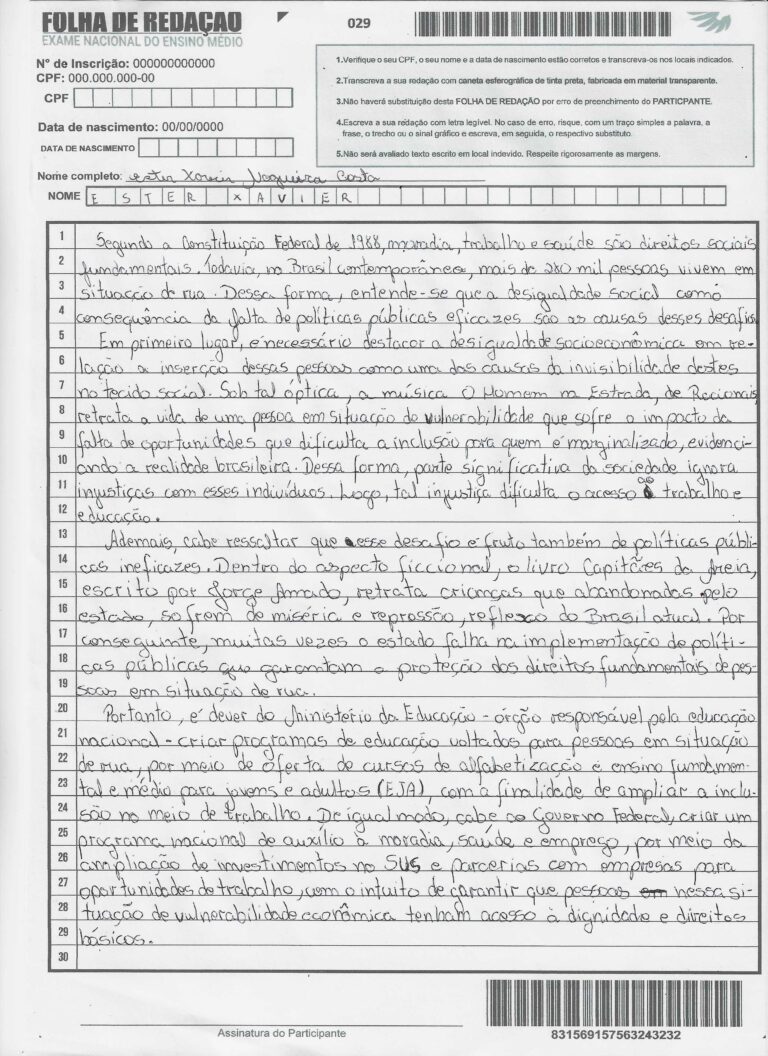 FOLHA DE REDAÇÃO
EXAME NACIONAL DO ENSINO MÉDIO
029
Nº de Inscrição: 000000000000
CPF: 000.000.000-00
CPF
Data de nascimento: 00/00/0000
DATA DE NASCIMENTO
1.Verifique o seu CPF, o seu nome e a data de nascimento estão corretos e transcreva-os nos locais indicados.
2.Transcreva a sua redação com caneta esferográfica de tinta preta, fabricada em material transparente.
3.Não haverá substituição desta FOLHA DE REDAÇÃO por erro de preenchimento do PARTICPANTE.
4.Escreva a sua redação com letra legível. No caso de erro, risque, com um traço simples a palavra, a
frase, o trecho ou o sinal gráfico e escreva, em seguida, o respectivo substituto.
5.Não será avaliado texto escrito em local indevido. Respeite rigorosamente as margens.
Nome completo: ester Xavier Nogueira Costa
NOME ESTER XAVIER
1 Segundo a Constituição Federal de 1988, moradia, trabalho e saúde são direitos sociais
2 fundamentais. Todavia, no Brasil contemporâneo, mais de 280 mil pessoas vivem em
3 situação de rua. Dessa forma, entende-se que a desigualdade social como
4 consequência da falta de políticas públicas eficazes são as causas desses desafios
5 Em primeiro lugar, é necessário destacar a desigualdade socioeconômica em re-
6 lação a inserção dessas pessoas como uma das causas da invisibilidade destes
7 no tecido social. Sob tal óptica, a música O Homem na Estrada, de Racionais,
8 retrata a vida de uma pessoa em situação de vulnerabilidade que sofre o impacto da
9 falta de oportunidades que dificulta a inclusão para quem é marginalizado, evidenci-
10 ando a realidade brasileira. Dessa forma, parte significativa da sociedade ignora
11 injustiças com esses indivíduos. Logo, tal injustiça dificulta o acesso ao trabalho e
12 educação.
13 Ademais, cabe ressaltar que esse desafio é fruto também de políticas públi-
14 cas ineficazes. Dentro do aspecto ficcional, o livro Capitães da Areia,
15 escrito por Jorge Amado, retrata crianças que abandonadas pelo
16 estado, sofrem de miséria e repressão, reflexo do Brasil atual. Por
17 conseguinte, muitas vezes o estado falha na implementação de políti-
18 cas públicas que garantam a proteção dos direitos fundamentais de pes-
19 soas em situação de rua.
20 Portanto, é dever do Ministério da Educação - órgão responsável pela educação
21 nacional - criar programas de educação voltados para pessoas em situação
22 de rua, por meio de oferta de cursos de alfabetização e ensino fundamen-
23 tal e médio para jovens e adultos (EJA), com a finalidade de ampliar a inclu-
24 são no meio de trabalho. De igual modo, cabe ao Governo Federal, criar um
25 programa nacional de auxílio a moradia, saúde e emprego, por meio da
26 ampliação de investimentos no SUS e parcerias com empresas para
27 oportunidades de trabalho, com o intuito de garantir que pessoas em nessa si-
28 tuação de vulnerabilidade econômica tenham acesso à dignidade e direitos
29 básicos.
30
Assinatura do Participante
831569157563243232